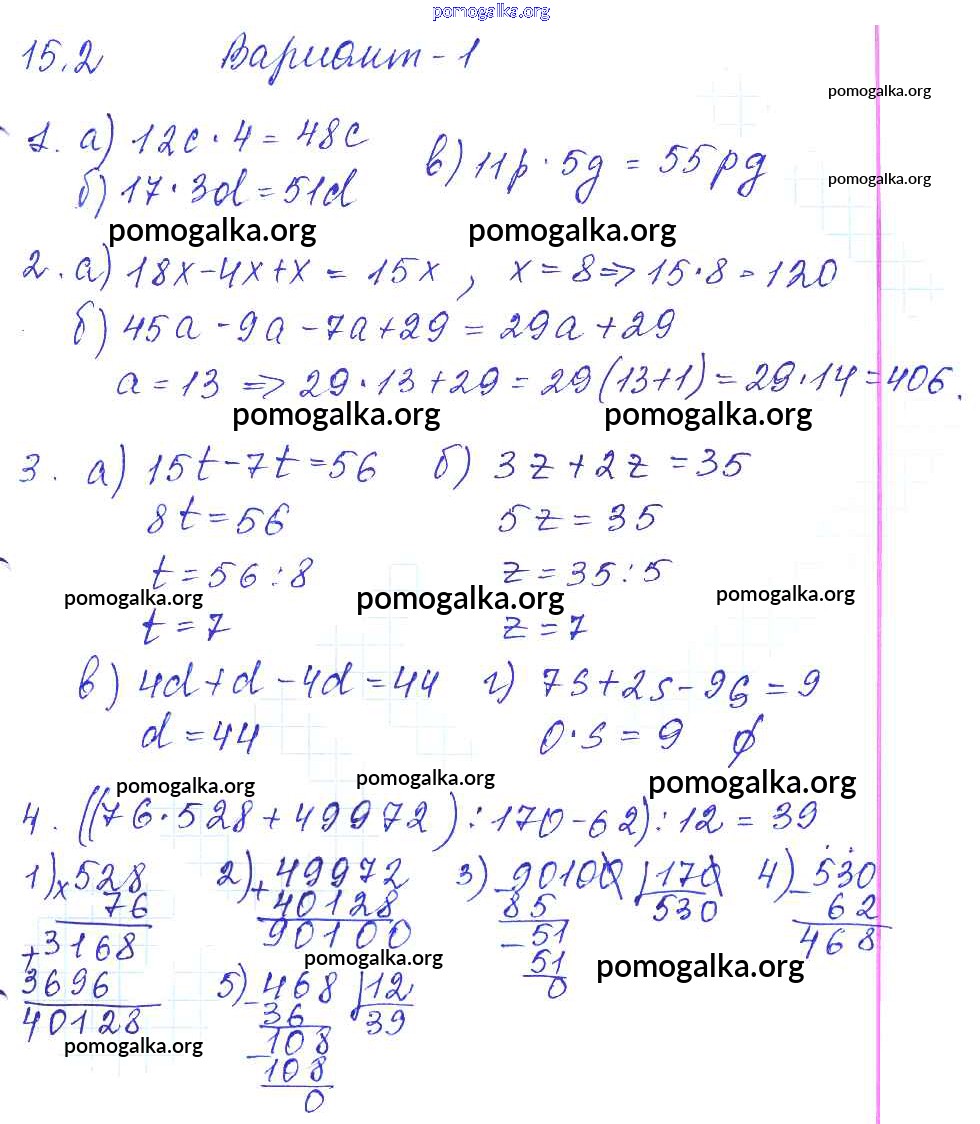 pomogalka.org
15.2 Вариант-1
pomogalka.org
1. а) 12c·4 = 48c
в) 11p·5g = 55pg
б) 17·3d = 51d
pomogalka.org
pomogalka.org pomogalka.org
2. а) 18x-4x+x = 15x, x=8=>15·8=120
б) 45a-9a-7a+29 = 29a+29
a=13 => 29·13+29=29(13+1)=29·14=406.
pomogalka.org pomogalka.org
3. а) 15t-7t=56 б) 3z+2z=35
8t=56 5z=35
t=56:8 z=35:5
pomogalka.org pomogalka.org pomogalka.org
t=7 z=7
в) 4d+d-4d=44 г) 7s+2s-9s=9
d=44 0·s=9 ∅
pomogalka.org pomogalka.org pomogalka.org
4. ((76·528+49972):170-62):12=39
1) ×528 2) +49972 3) -90100 |170 4) -530
76 40128 85 530 62
+3168 90100 -51 468
pomogalka.org pomogalka.org
3696 5) -468 |12 51
40128 36 39 0
pomogalka.org
-108
108
0